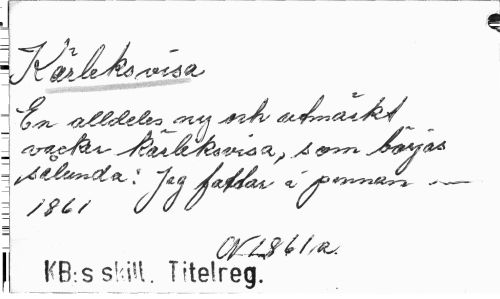 Kärleksvisa
En alldeles ny och utmärkt
vacker kärleksvisa, som börjas
sålunda: Jag fattar i pennan —
1861
N 1861 a.
KB:s skill. Titelreg.